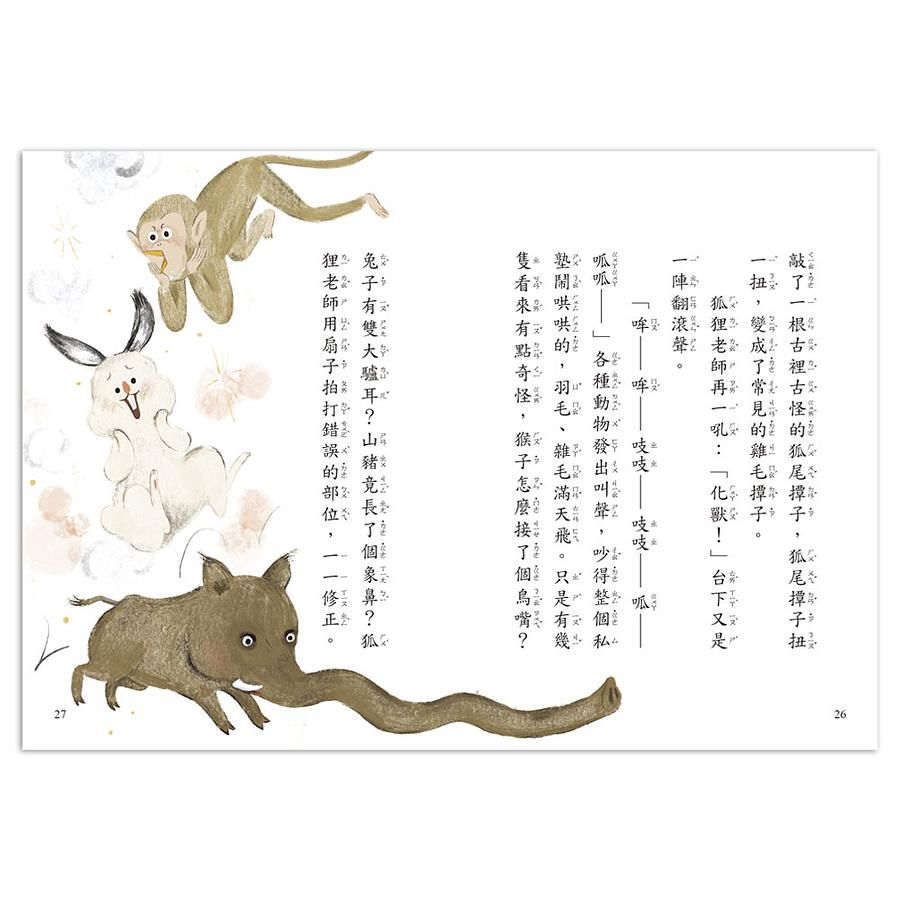 敲了一根古裡古怪的狐尾撢子,狐尾撢子扭
一扭,變成了常見的雞毛撢子。
狐狸老師再一吼:「化獸!」台下又是
一陣翻滾聲。
「哞——哞——吱吱——吱吱——呱——
呱呱——」各種動物發出叫聲,吵得整個私
塾鬧哄哄的,羽毛、雜毛滿天飛。只是有幾
隻看來有點奇怪,猴子怎麼接了個鳥嘴?
兔子有雙大驢耳?山豬竟長了個象鼻?狐
狸老師用扇子拍打錯誤的部位,一一修正。
27
26